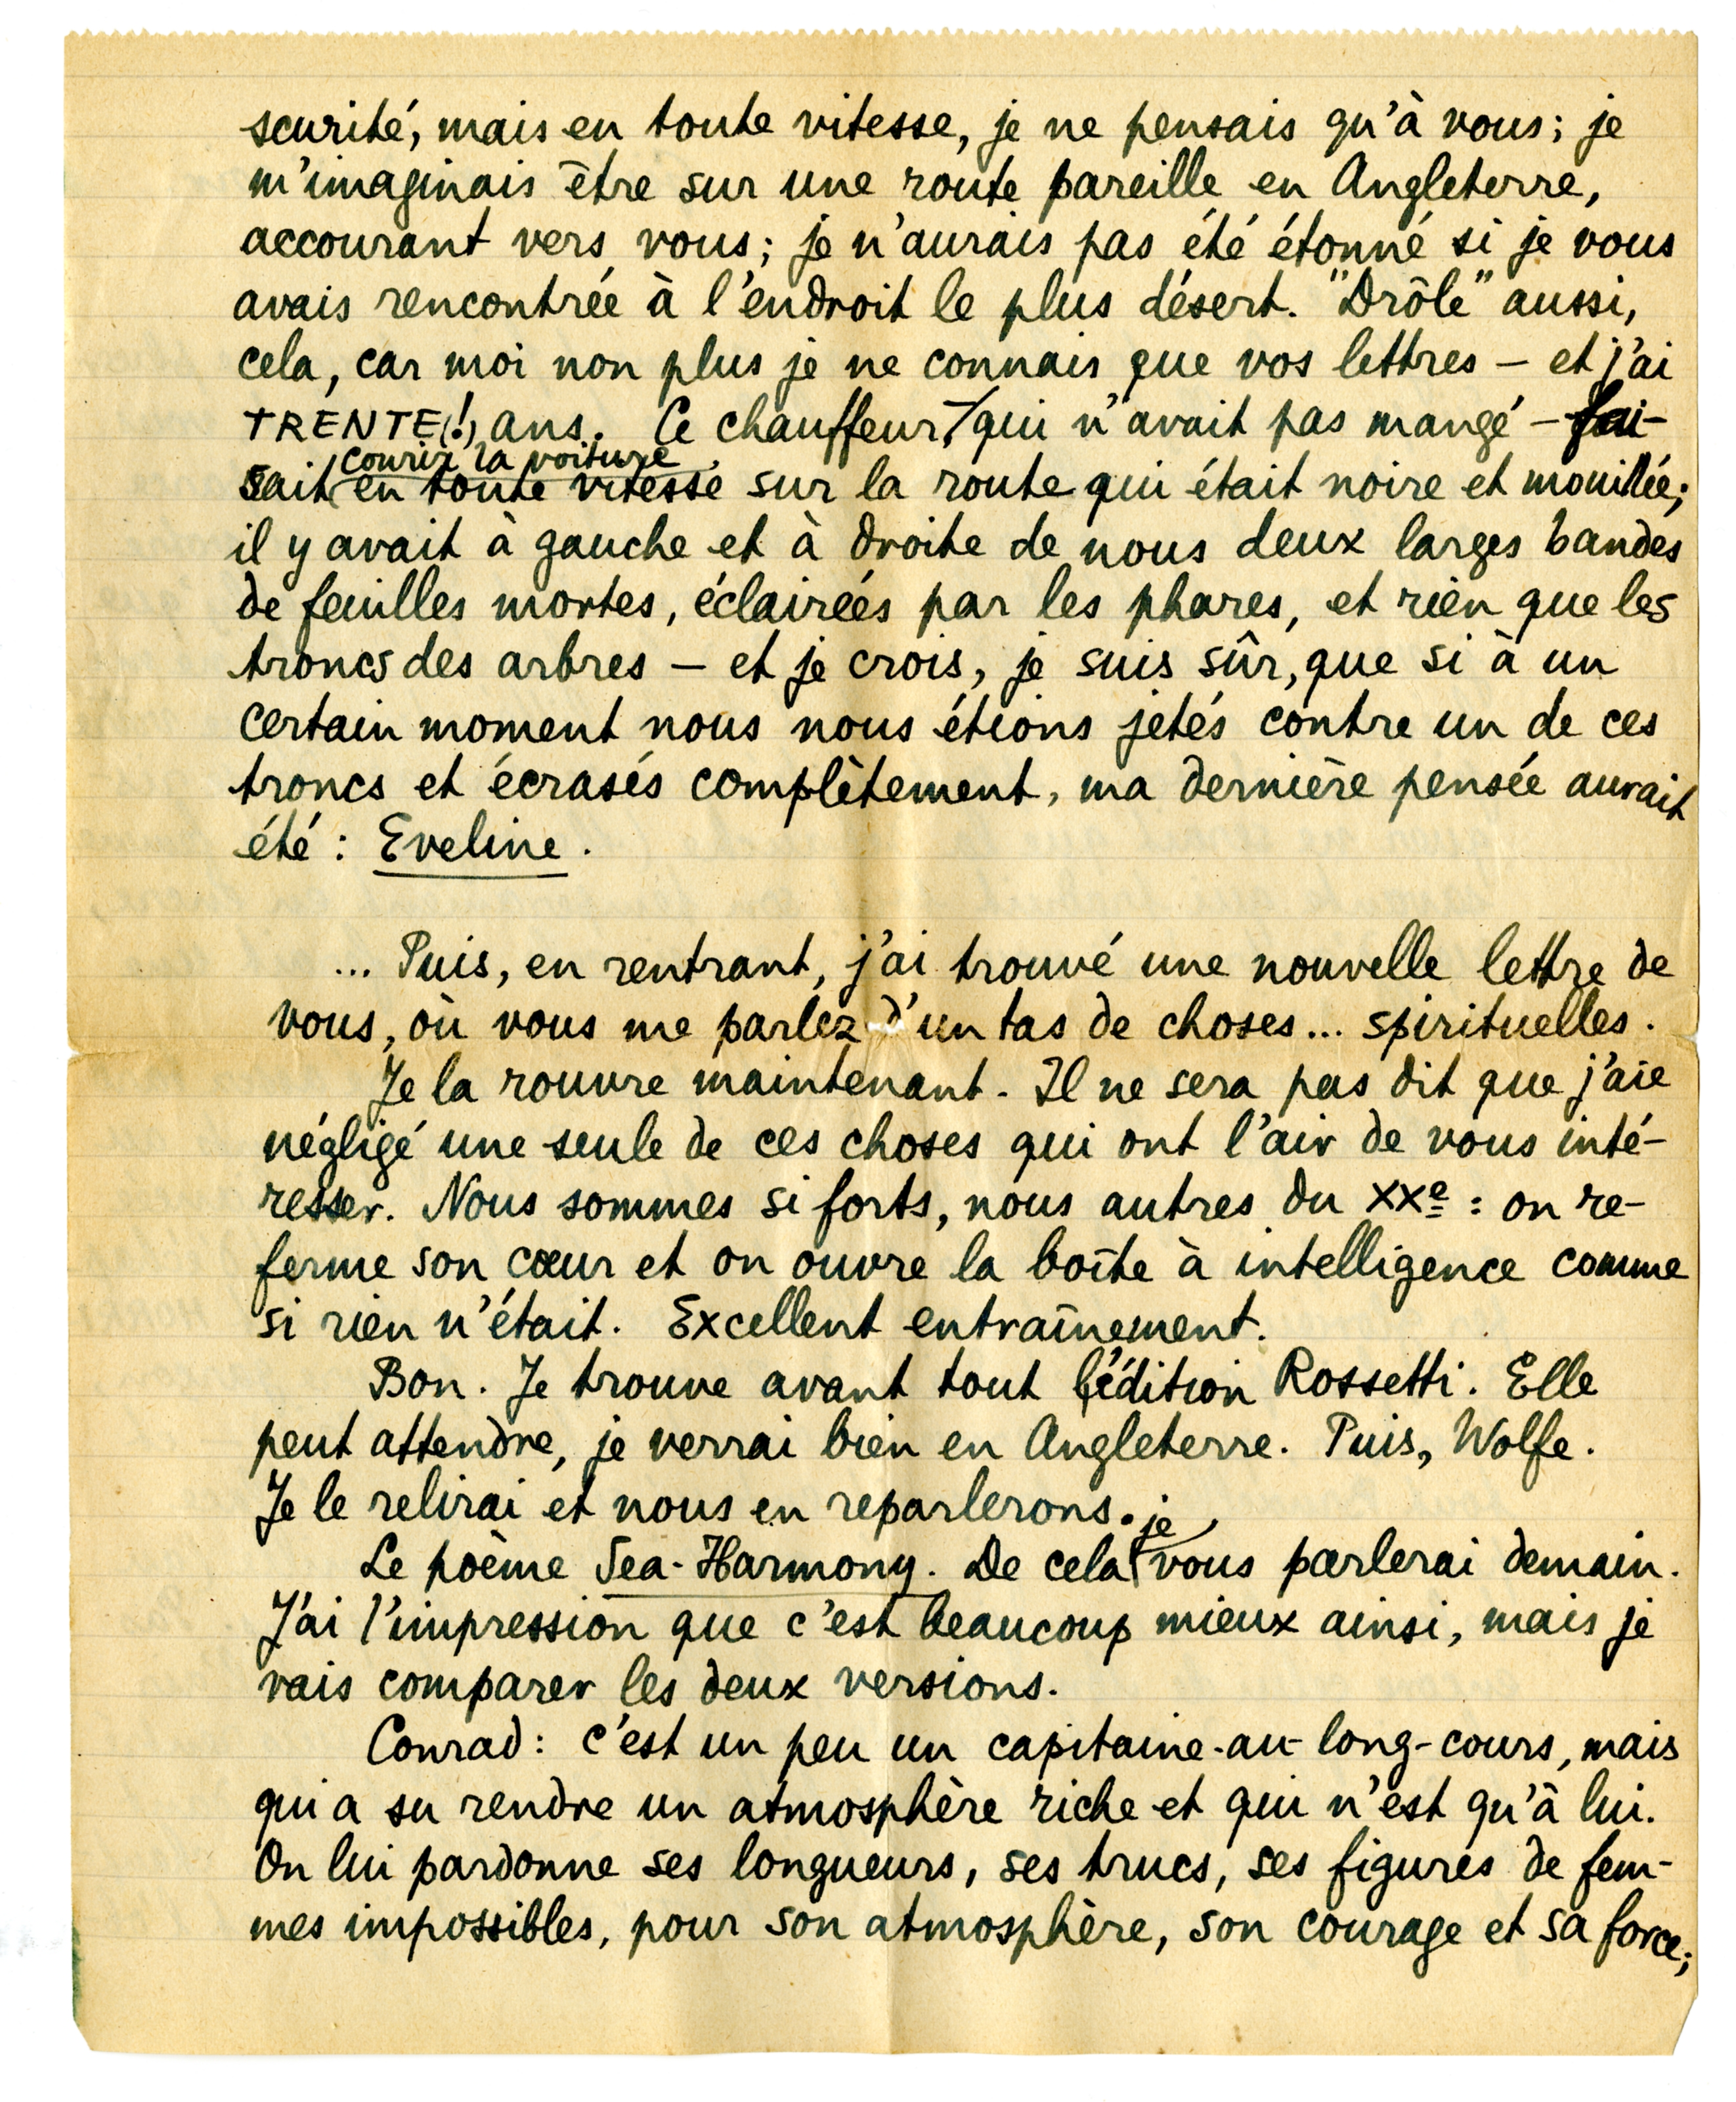 scurité, mais en toute vitesse, je ne pensais qu'à vous; je
m'imaginais être sur une route pareille en Angleterre,
accourant vers vous; je n'aurais pas été étonné si je vous
avais rencontrée à l'endroit le plus désert. "Drôle" aussi,
cela, car moi non plus je ne connais que vos lettres – et j'ai
TRENTE(!) ans. Ce chauffeur – qui n'avait pas mangé – fai-
courir la voiture
sait en toute vitesse sur la route qui était noire et mouillée;
il y avait à gauche et à droite de nous deux larges bandes
de feuilles mortes, éclairées par les phares, et rien que les
troncs des arbres – et je crois, je suis sûr, que si à un
certain moment nous nous étions jetés contre un de ces
troncs et écrasés complètement, ma dernière pensée aurait
été : Eveline.
... Puis, en rentrant, j'ai trouvé une nouvelle lettre de
vous, où vous me parlez d'un tas de choses... spirituelles.
Je la rouvre maintenant. Il ne sera pas dit que j'aie
négligé une seule de ces choses qui ont l'air de vous inté-
resser. Nous sommes si forts, nous autres du XXe : on re-
ferme son cœur et on ouvre la boîte à intelligence comme
si rien n'était. Excellent entraînement.
Bon. Je trouve avant tout l'édition Rossetti. Elle
peut attendre, je verrai bien en Angleterre. Puis, Wolfe.
Je le relirai et nous en reparlerons.
je
Le poème Sea-Harmony. De cela vous parlerai demain.
J'ai l'impression que c'est beaucoup mieux ainsi, mais je
vais comparer les deux versions.
Conrad : c'est un peu un capitaine-au-long-cours, mais
qui a su rendre un atmosphère riche et qui n'est qu'à lui.
On lui pardonne ses longueurs, ses trucs, ses figures de fem-
mes impossibles, pour son atmosphère, son courage et sa force;